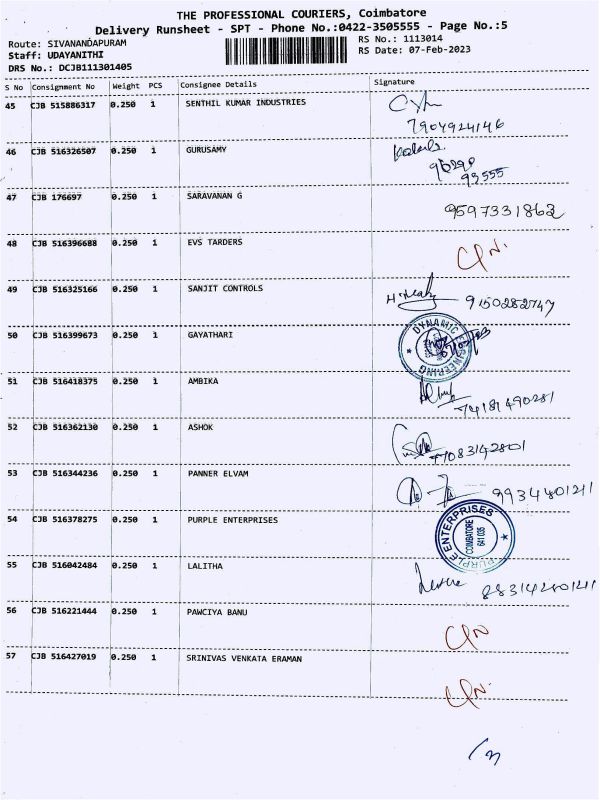 THE PROFESSIONAL COURIERS, Coimbatore
Delivery Runsheet - SPT - Phone No.:0422-3505555 - Page No.:5
Route: SIVANANDAPURAM
RS No.: 1113014
Staff: UDAYANITHI
RS Date: 07-Feb-2023
DRS No.: DCJB111301405
S No Consignment No Weight PCS Consignee Details Signature
45 CJB 515886317 0.250 1 SENTHIL KUMAR INDUSTRIES
7904924146
46 CJB 516326507 0.250 1 GURUSAMY
93555
47 CJB 176697 0.250 1 SARAVANAN G
9597331862
48 CJB 516396688 0.250 1 EVS TARDERS
49 CJB 516325166 0.250 1 SANJIT CONTROLS
9150282747
50 CJB 516399673 0.250 1 GAYATHARI
DYNAMIC ENGINEERING
51 CJB 516418375 0.250 1 AMBIKA
74181490281
52 CJB 516362130 0.250 1 ASHOK
77083142801
53 CJB 516344236 0.250 1 PANNER ELVAM
9934801211
54 CJB 516378275 0.250 1 PURPLE ENTERPRISES
PURPLE ENTERPRISES
COIMBATORE
641 035
55 CJB 516042484 0.250 1 LALITHA
56 CJB 516221444 0.250 1 PAWCIYA BANU
57 CJB 516427019 0.250 1 SRINIVAS VENKATA ERAMAN